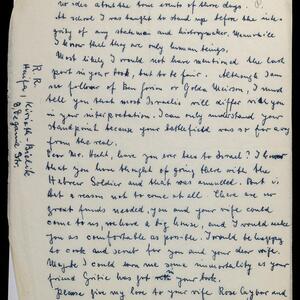 no idea about the true events of those days.
At school I was taught to stand up before the inte-
grity of any statesman and historymaker. Meanwhile
I know that they are only human beings.
Most likely I would not have mentioned the last
part in your book, but to be fair. Although I am
no follower of Ben Gurion or Golda Meirson, I must
tell you that most Israelis will differ with you
in your interpretation. I can only understand your
standpoint because your battlefield was so far away
from the real.
Dear Mr. Hecht, have you ever been to Israel? I know
that you have thought of going there with the
Hebrew Soldier and that was annulled. But
not a reason not to come at all. There are no
great funds needed, you and your wife could
come to us, we have a big house, and I would make
you as comfortable as possible. I would be happy
to cook and scrub for you and your dear wife.
Maybe I could earn me some immortality as your
friend Fritzie has got with your book.
Please give my love to your wife Rose Caylor and
R. R.
Haifa, Kiriath Bialik